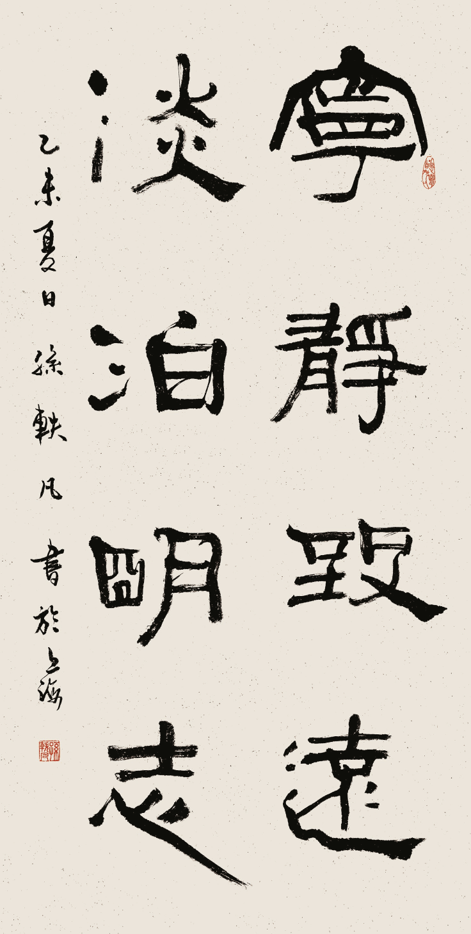 寧靜致遠
淡泊明志
乙未夏日孫軼凡書於上海